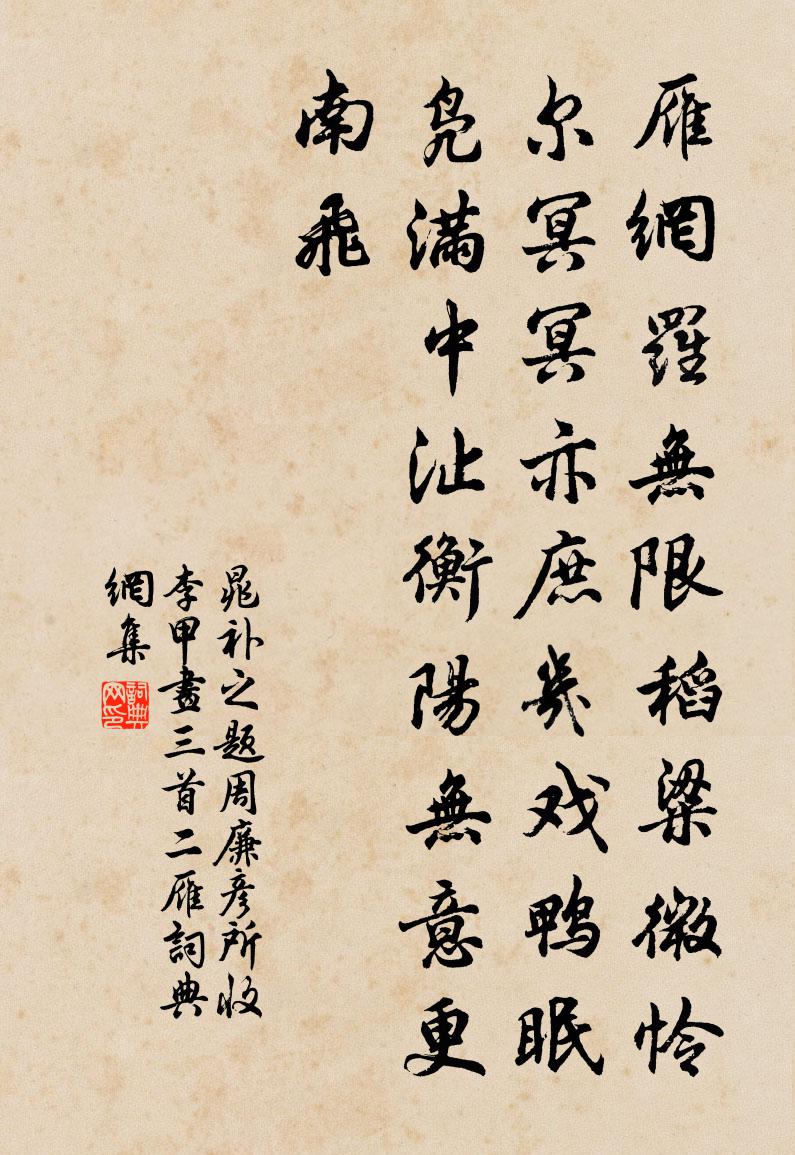 雁網羅無限稻粱微怜
尔冥冥亦庶㡬戏鴨眠
凫滿中沚衡陽無意更
南飛
晁补之题周廉彦所收
李甲畫三首二雁詞典
網集
詞典網印